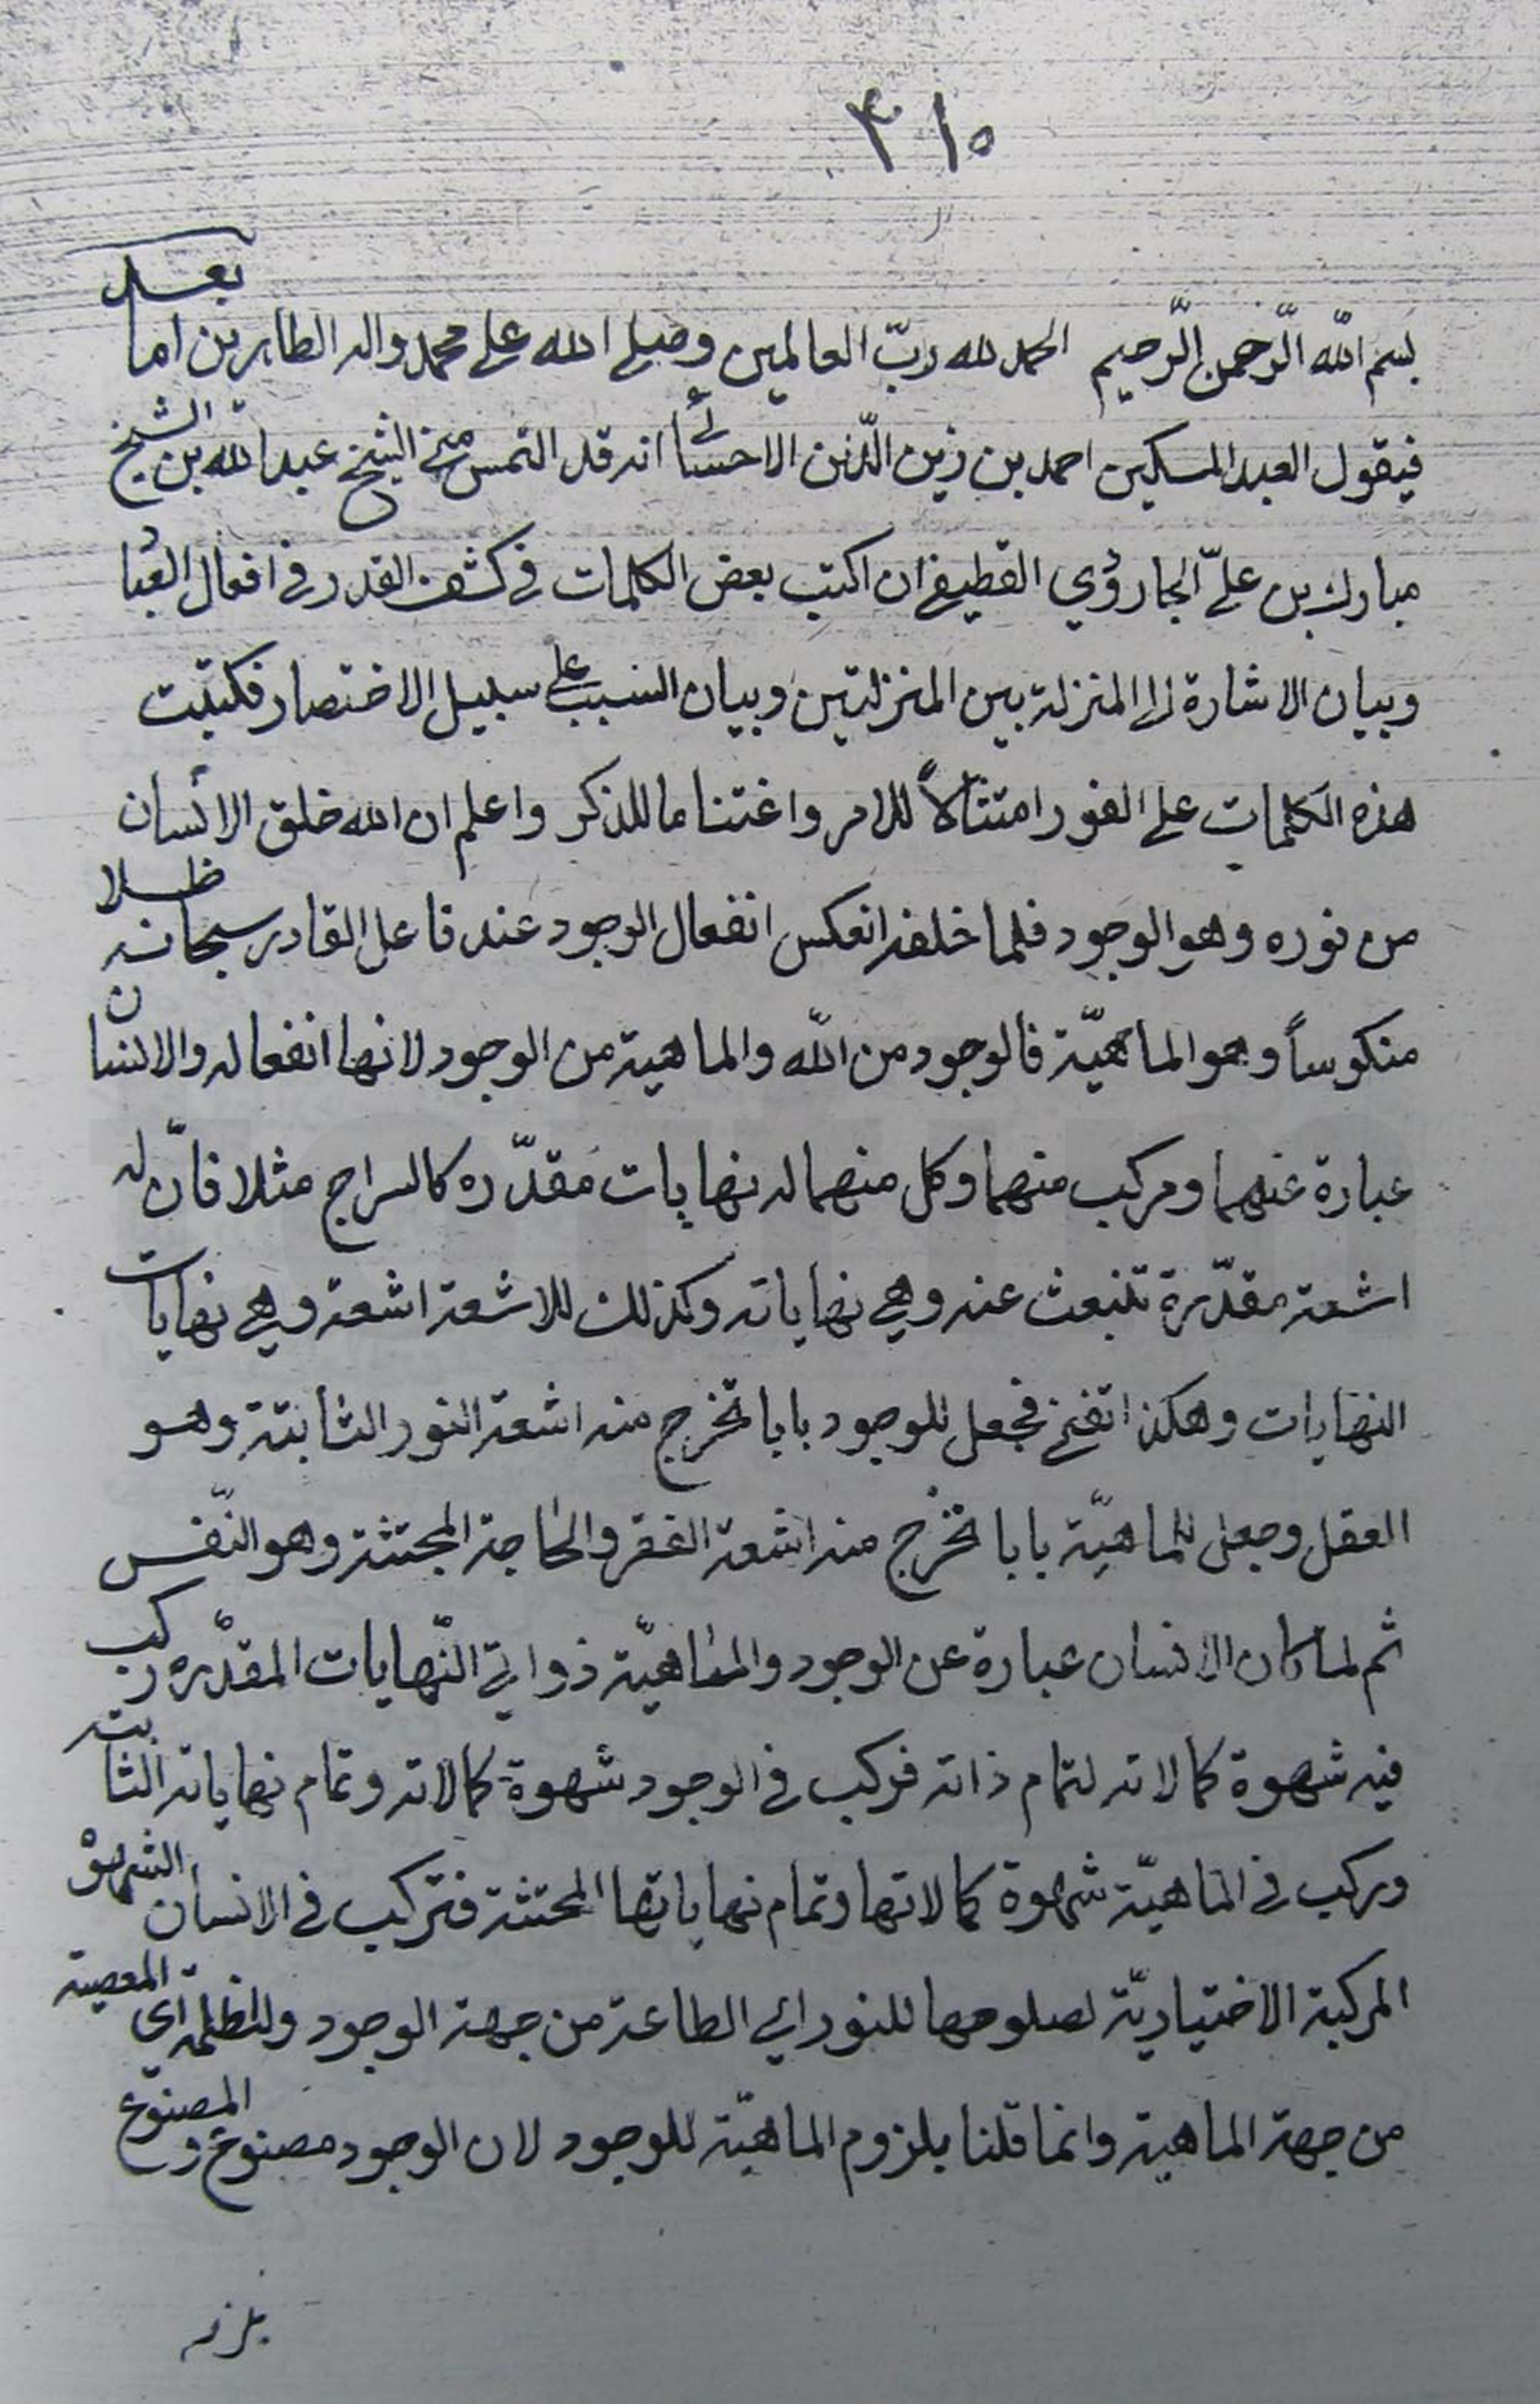 ٣١٥
بسم اللّه الرّحمن الرّحيم الحمد لله ربّ العالمين وصلى الله على محمد واله الطاهرين اما بعد
فيقول العبد المسكين احمد بن زين الدّين الاحسائى انه قد التمس منى الشيخ عبدالله بن الشيخ
مبارك بن علىّ الجارؤدي القطيفى ان اكتب بعض الكلمات فى كشف القدر فى افعال العباد
وبيان الاشارة الى المنزلة بين المنزلتين وبيان السبب على سبيل الاختصار فكتبت
هذه الكلمات على الفور امتثالاً للامر واغتناما للذكر واعلم ان الله خلق الانسان
من نوره وهو الوجود فلما خلقه انعكس انفعال الوجود عند فاعل القادر سبحانه ظلا
منكوساً وهو الماهيّة فالوجود من اللّه والماهية من الوجود لانها انفعاله والانسان
عبارة عنهما ومركب منهما وكل منهما له نهايات مقدّره كالسراج مثلا فانّ له
اشعة مقدّرة تنبعث عنه وهى نهاياته وكذلك للاشعة اشعة وهى نهايات
النهايات وهكذا فجعل للوجود بابا تخرج منه اشعة النور الثابتة وهو
العقل وجعل للماهيّة بابا تخرج منه اشعة الفقر والحاجة المجتثة وهو النّفس
ثم لما كان الانسان عبارة عن الوجود والماهيّة ذواتى النّهايات المقدّره ركب
فيه شهوة كمالاته لتمام ذاته فركب فى الوجود شهوة كمالاته وتمام نهاياته الثابته
وركب فى الماهيّة شهوة كمالاتها وتمام نهاياتها المجتثة فتركب فى الانسان الشهوة
المركبة الاختياريّة لصلوحها للنور اى الطاعة من جهة الوجود وللظلمة اى المعصية
من جهة الماهية وانما قلنا بلزوم الماهيّة للوجود لان الوجود مصنوع والمصنوع
يلزمه